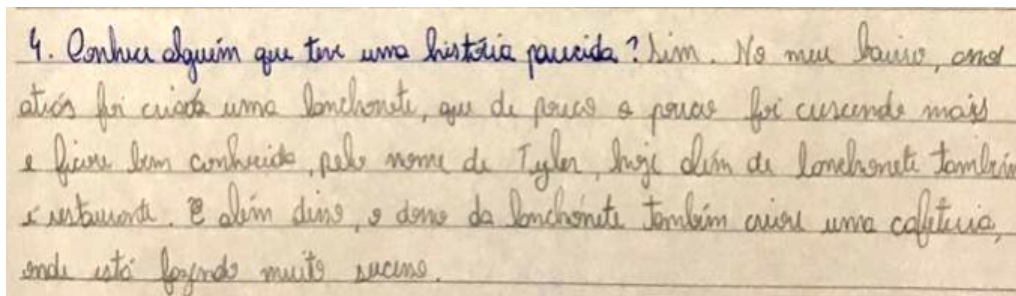 4. Conhece alguém que teve uma história parecida? Sim. No meu bairro, anos
atrás foi criada uma lanchonete, que de pouco a pouco foi crescendo mais
e ficou bem conhecida, pelo nome de Tyler, hoje além de lanchonete também
é restaurante. E além disso, o dono da lanchonete também criou uma cafeteria,
onde está fazendo muito sucesso.